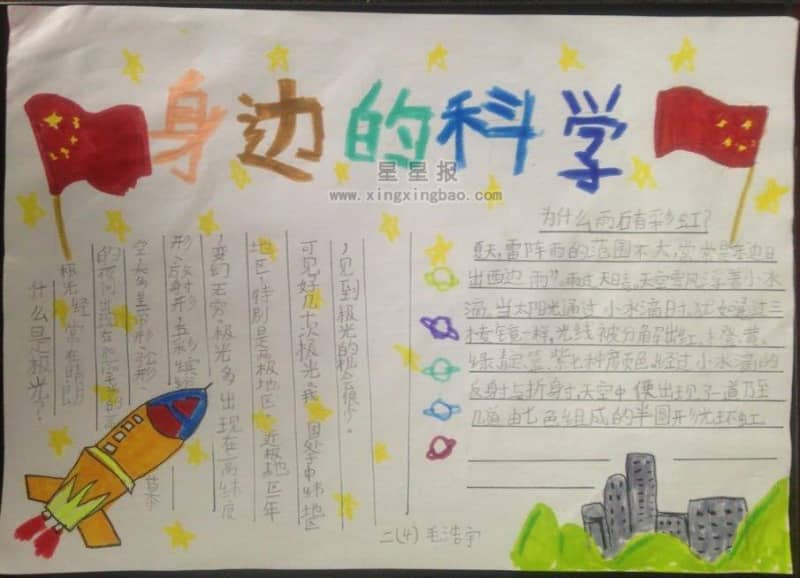 身边的科学
星星报
www.xingxingbao.com
什么是极光?
极光经常在晴朗
的夜间出现在
空,多呈带形、弧形
形、放射形,五彩缤纷
,变幻无穷。极光多出现在高纬度
地区,特别是两极地区,近极地区一年
可见好几十次极光。我国处中纬地区
,见到极光的机会很少。
为什么雨后有彩虹?
夏天,雷阵雨的范围不大,常常是东边日
出西边雨”。雨过天晴,天空里飘浮着小水
滴,当太阳光通过小水滴时,犹如通过三
棱镜一样,光线被分解出红、橙、黄、
绿、靛、蓝、紫七种颜色,经过小水滴的
反射与折射,天空中便出现了一道乃至
几道由七色组成的半圆形光环虹。
二(4) 毛浩宇